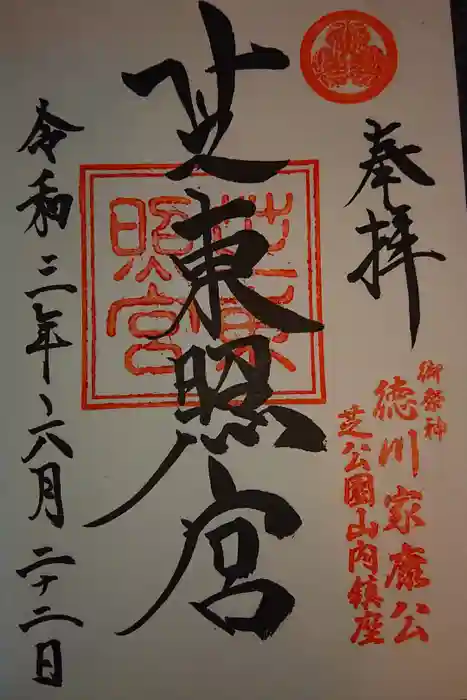 奉拝
御祭神
徳川家康公
芝公園山内鎮座
芝東照宮
芝東照宮
令和三年六月二十二日